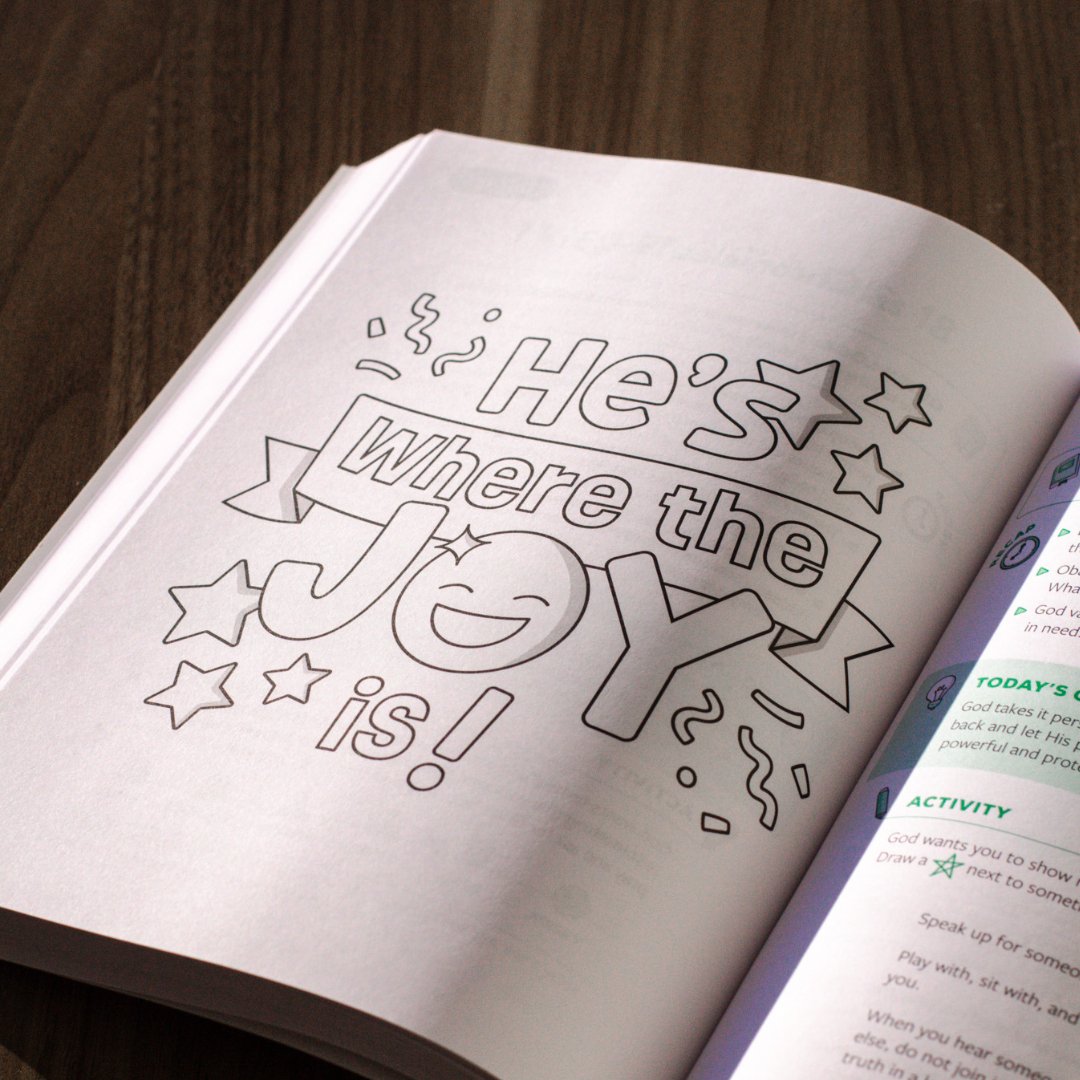 He's
Where the
JOY
is!
RECAP
God
in need
TODAY'S
God takes it
back and let His
powerful and
ACTIVITY
God wants you to show
Draw a next to
Speak up for
Play with, sit with, and
you.
When you hear
else, do not join
truth in a